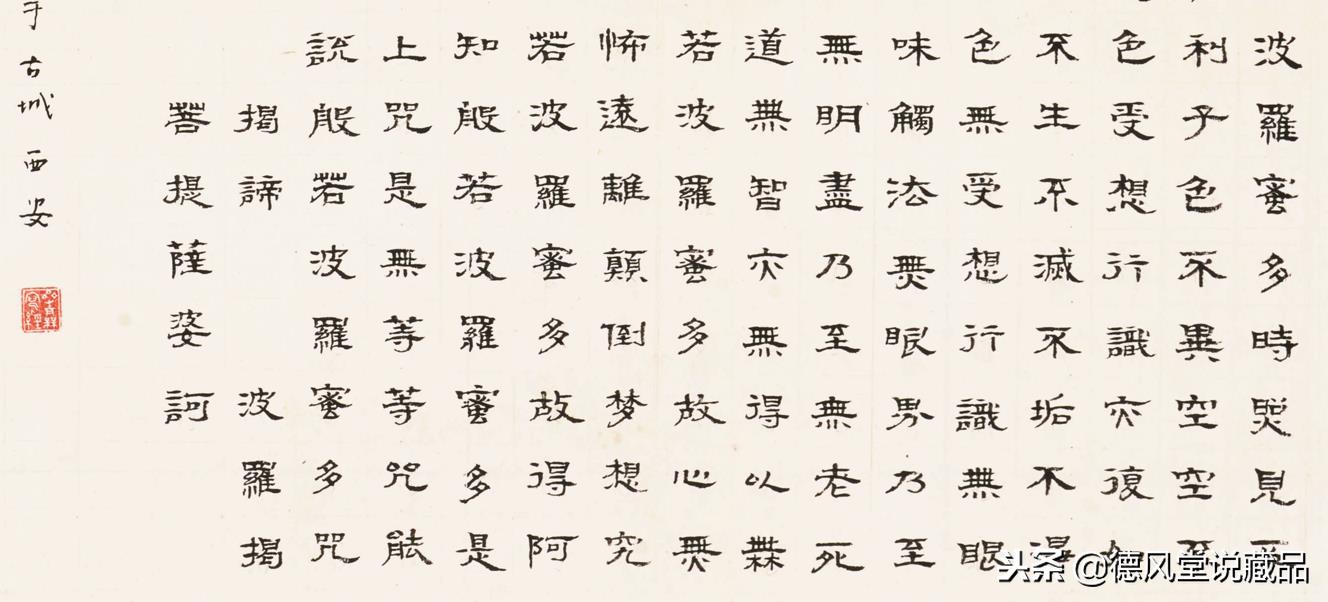 波羅蜜多時照見五
利子色不異空空
色受想行識亦復如
不生不滅不垢不淨
色無受想行識無眼
味觸法無眼界乃至
無明盡乃至無老死
道無智亦無得以無
若波羅蜜多故心無
怖遠離顛倒梦想究
若波羅蜜多故得阿
知般若波羅蜜多是
上咒是無等等咒能
說般若波羅蜜多咒
揭諦 波羅揭
菩提薩婆訶
于古城西安
头条 @德风堂说藏品